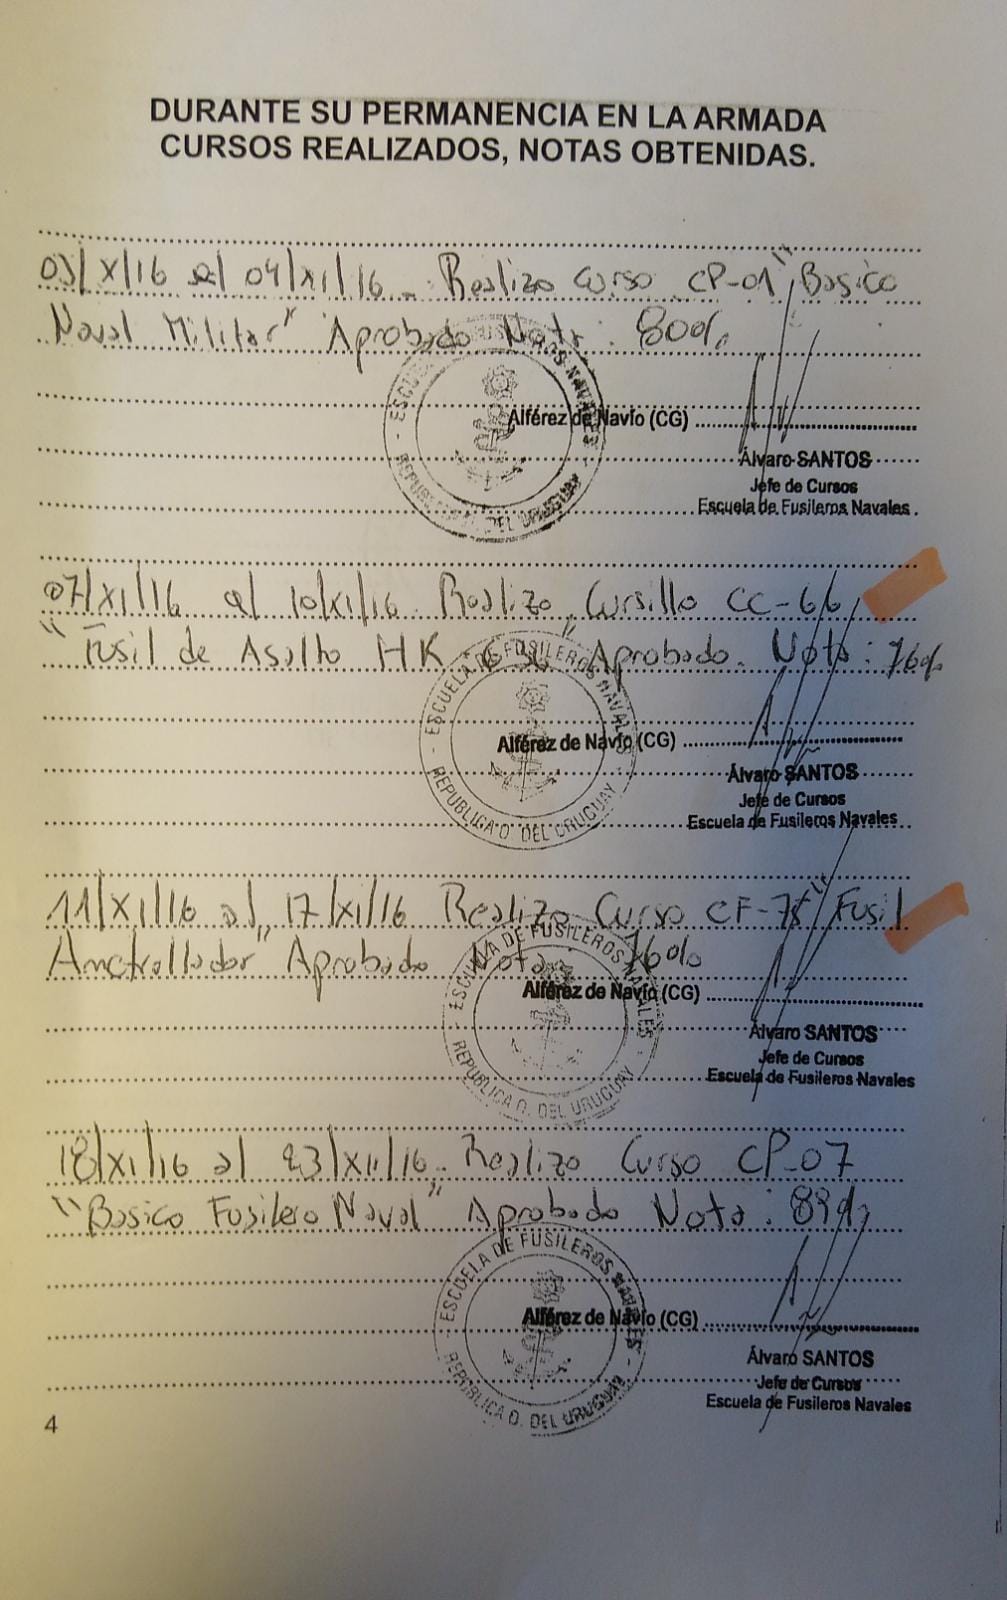 DURANTE SU PERMANENCIA EN LA ARMADA
CURSOS REALIZADOS, NOTAS OBTENIDAS.
03/X/16 al 04/XI/16. Realizo Curso CP-01 "Basico
Naval Militar" Aprobado Nota: 80%
ESCUELA DE FUSILEROS NAVALES
REPUBLICA O. DEL URUGUAY
Alférez de Navío (CG)
Álvaro SANTOS
Jefe de Cursos
Escuela de Fusileros Navales
07/XI/16 al 10/XI/16. Realizo Cursillo CC-66
"Fusil de Asalto HK G36" Aprobado. Nota: 76%
ESCUELA DE FUSILEROS NAVALES
REPUBLICA O. DEL URUGUAY
Alférez de Navío (CG)
Álvaro SANTOS
Jefe de Cursos
Escuela de Fusileros Navales
11/XI/16 al 17/XI/16 Realizo Curso "Fusil
Ametrallador" Aprobado Nota 76%
ESCUELA DE FUSILEROS NAVALES
REPUBLICA O. DEL URUGUAY
Alférez de Navío (CG)
Álvaro SANTOS
Jefe de Cursos
Escuela de Fusileros Navales
18/XI/16 al 23/XII/16. Realizo Curso CP-07
"Basico Fusilero Naval" Aprobado Nota: 89%
ESCUELA DE FUSILEROS NAVALES
REPUBLICA O. DEL URUGUAY
Alférez de Navío (CG)
Álvaro SANTOS
Jefe de Cursos
Escuela de Fusileros Navales
4